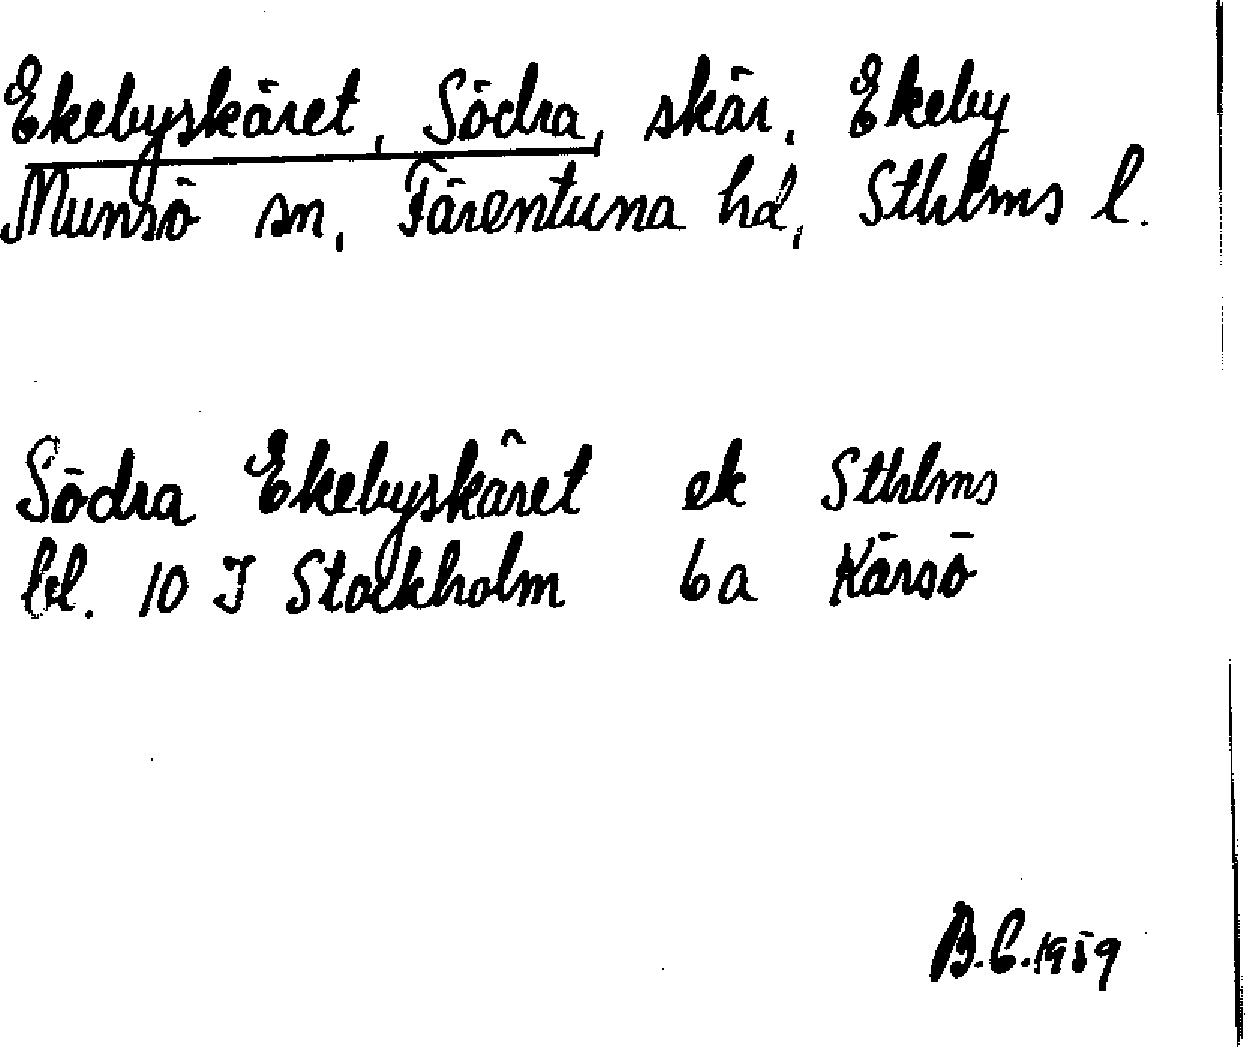 Ekebyskäret, Södra, skär, Ekeby
Munsö sn, Färentuna hd, Sthlms l.
Södra Ekebyskäret ek Sthlms
bl. 10 I Stockholm 6a Kärsö
B.C. 1959